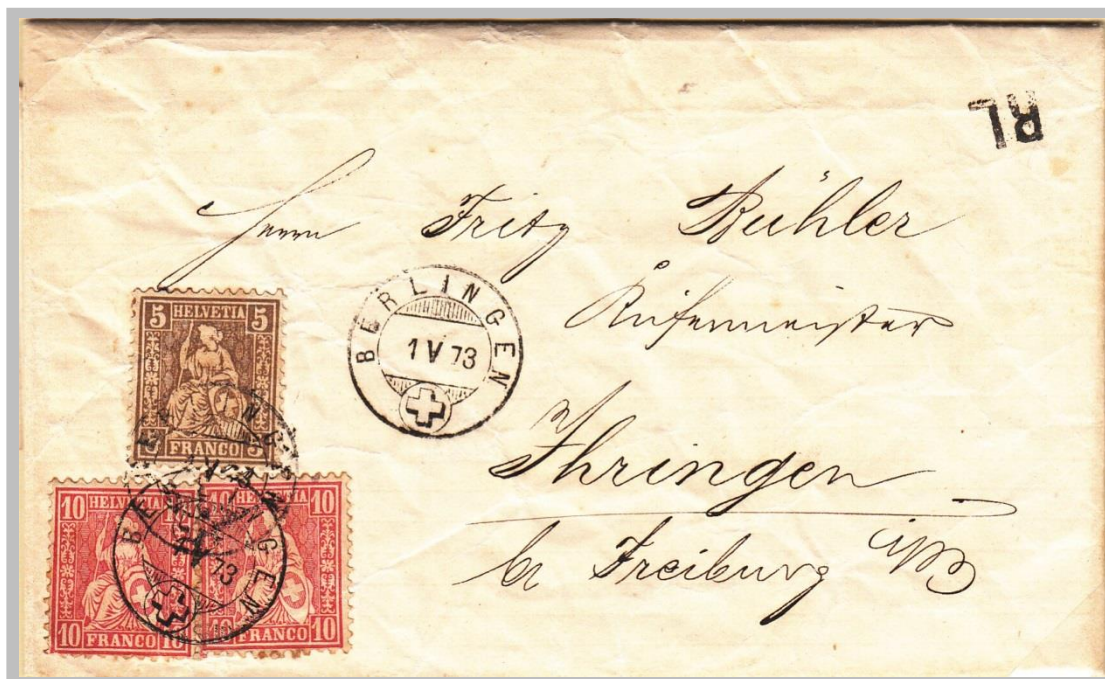 RL
Herrn Fritz Bühler
Küfermeister
Ihringen
bei Freiburg i/B
BERLINGEN
1 V 73
5 HELVETIA 5
5 FRANCO 5
10 HELVETIA 10
10 FRANCO 10
10 HELVETIA 10
10 FRANCO 10
BERLINGEN
1 V 73